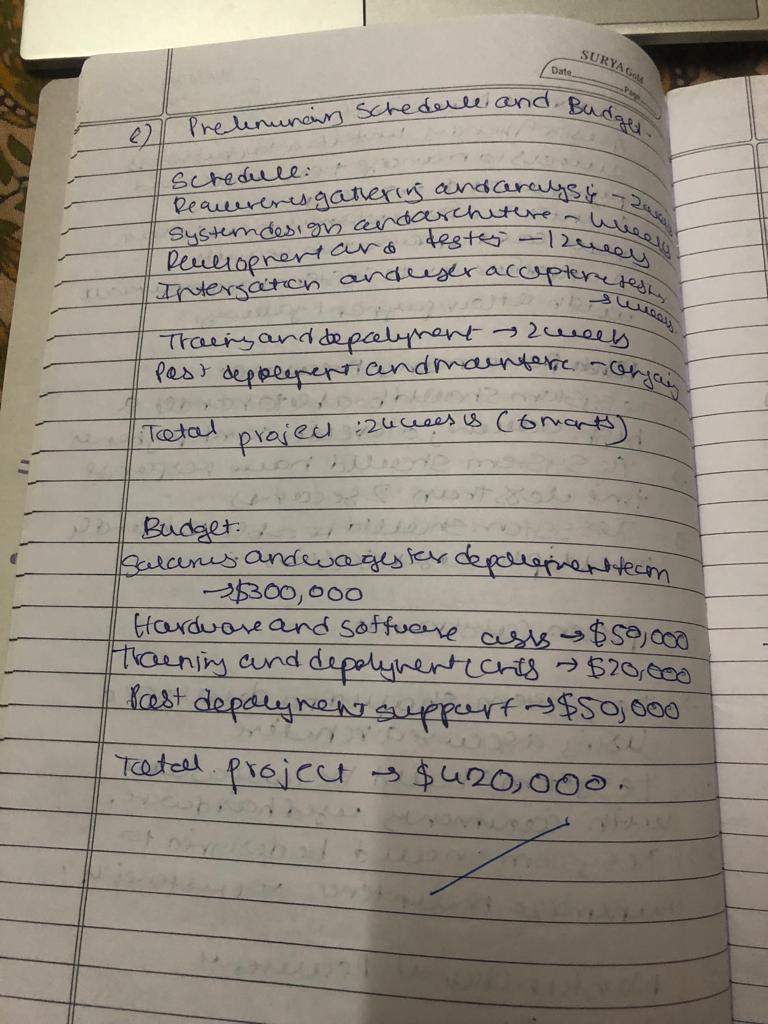 SURYA Gold
Date
Page
e) Preliminary Schedule and Budget.
Schedule:
Requirements gathering and analysis - 2 weeks
System design and architecture - 4 weeks
Development and testing - 12 weeks
Intergration and user acceptance tests
→ 4 weeks.
Training and depalyment → 2 weeks
Post deployment and maintenance - ongoing
Total project : 24 weeks (6 months)
Budget:
Salaries and wages for depolyment team
→ $300,000
Hardware and software costs → $50,000
Training and depolyment costs → $20,000
Post depolyment support → $50,000
Total project → $420,000.